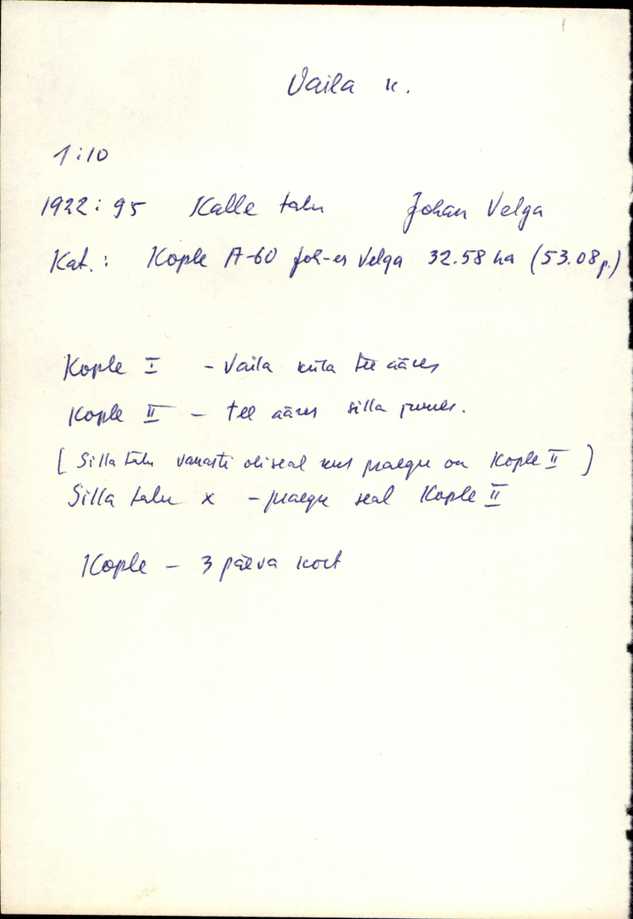 Vaila k.
1:10
1922: 95 Kalle talu Johan Velga
Kat.: Kople A-60 Joh-es Velga 32.58 ha (53.08 p.)
Kople I - Vaila küla tee ääres
Kople II - tee ääres silla juures.
[Silla talu vanasti oli seal kus praegu on Kople II]
Silla talu x - praegu seal Kople II
Kople - 3 päeva koht